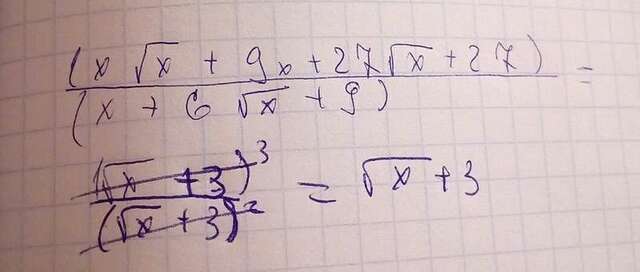 (x √x + 9x + 27√x + 27) / (x + 6 √x + 9) =
(√x + 3)³ / (√x + 3)² = √x + 3